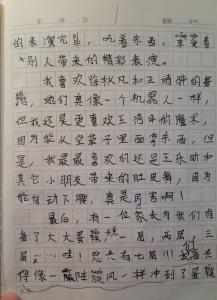 的表演完毕，吃着东西，享受着
别人带来的精彩表演。
我喜欢徐枫凡和王清铧的舞
蹈，她们真像一个机器人一样，
但我还是更喜欢王洁伟的魔术，
因为能从空袋子里面拿东西，但
是，我最最喜欢的还是王乐昕和
其它小朋友带来的肚皮舞，因为
能自动下腰，真是厉害啊！
最后，有一位家长为我们准
备了大大蛋糕，一层，两层，三
层……哇！总共有七层！！！我
像一陇风一样冲到了蛋糕